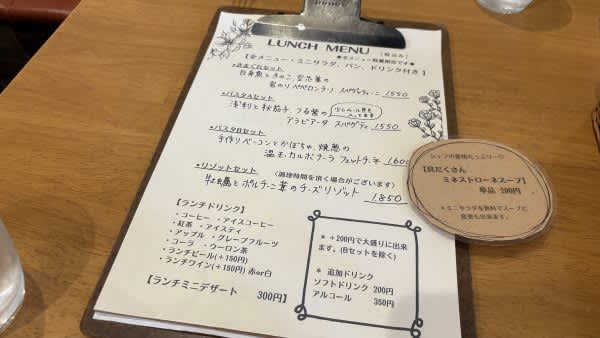 LUNCH MENU
(税込み)
●全メニュー数量限定です●
【全メニュー・ミニサラダ、パン、ドリンク付き】
白身魚ときのこ、空芯菜の
岩のりペペロンチーノ スパゲティーニ 1550
●パスタAセット
浅利と秋茄子、つる紫の
アラビアータ スパゲティ 1550
●パスタBセット
手作りベーコンとかぼちゃ、焼葱の
温玉カルボナーラ フェットチーネ 1600
●リゾットセット (調理時間を頂く場合がございます)
牡蠣とポルチーニ茸のチーズリゾット 1850
【ランチドリンク】
・コーヒー ・アイスコーヒー
・紅茶 ・アイスティ
・アップル ・グレープフルーツ
・コーラ ・ウーロン茶
・ランチビール(+150円)
・ランチワイン(+150円) 赤or白
【ランチミニデザート 300円】
* +200円で大盛りに出来
ます。(Bセットを除く)
* 追加ドリンク
ソフトドリンク 200円
アルコール 350円
シェフの愛情たっぷり〜♡
【具だくさん
ミネストローネスープ】
単品 200円
*ミニサラダを無料でスープに
変更も出来ます。